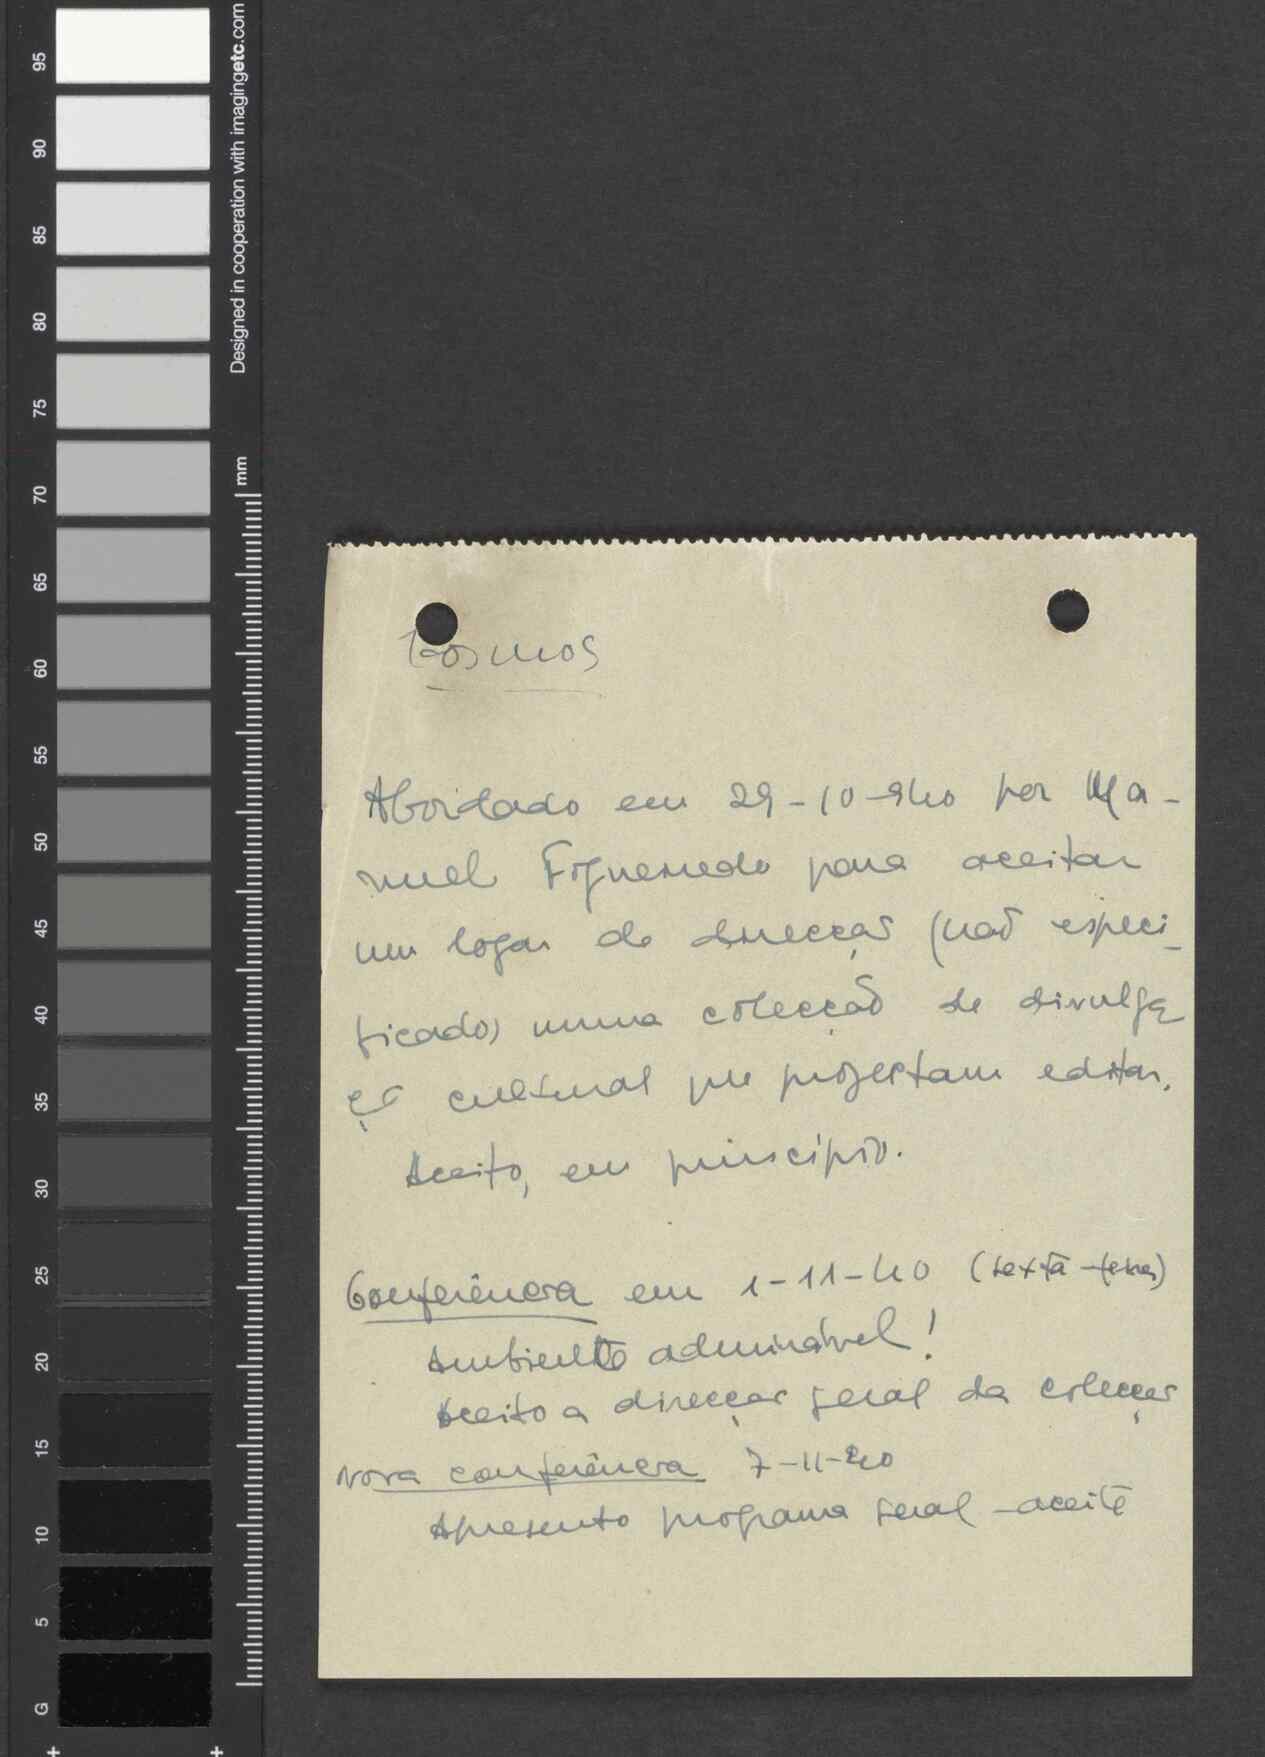 Designed in cooperation with imagingetc.com
mm
95
90
85
80
75
70
65
60
55
50
45
40
35
30
25
20
15
10
5
G
Cosmos
Abordado em 29-10-940 por Ma-
nuel Figueiredo para aceitar
um logar de direcção (não especi-
ficado) numa colecção de divulga
ção cultural que projectam editar.
Aceito, em princípio.
Conferência em 1-11-40 (sexta-feira)
Ambiente admirável!
Aceito a direcção geral da colecção
Nova conferência 7-11-40
Apresento programa geral - aceite